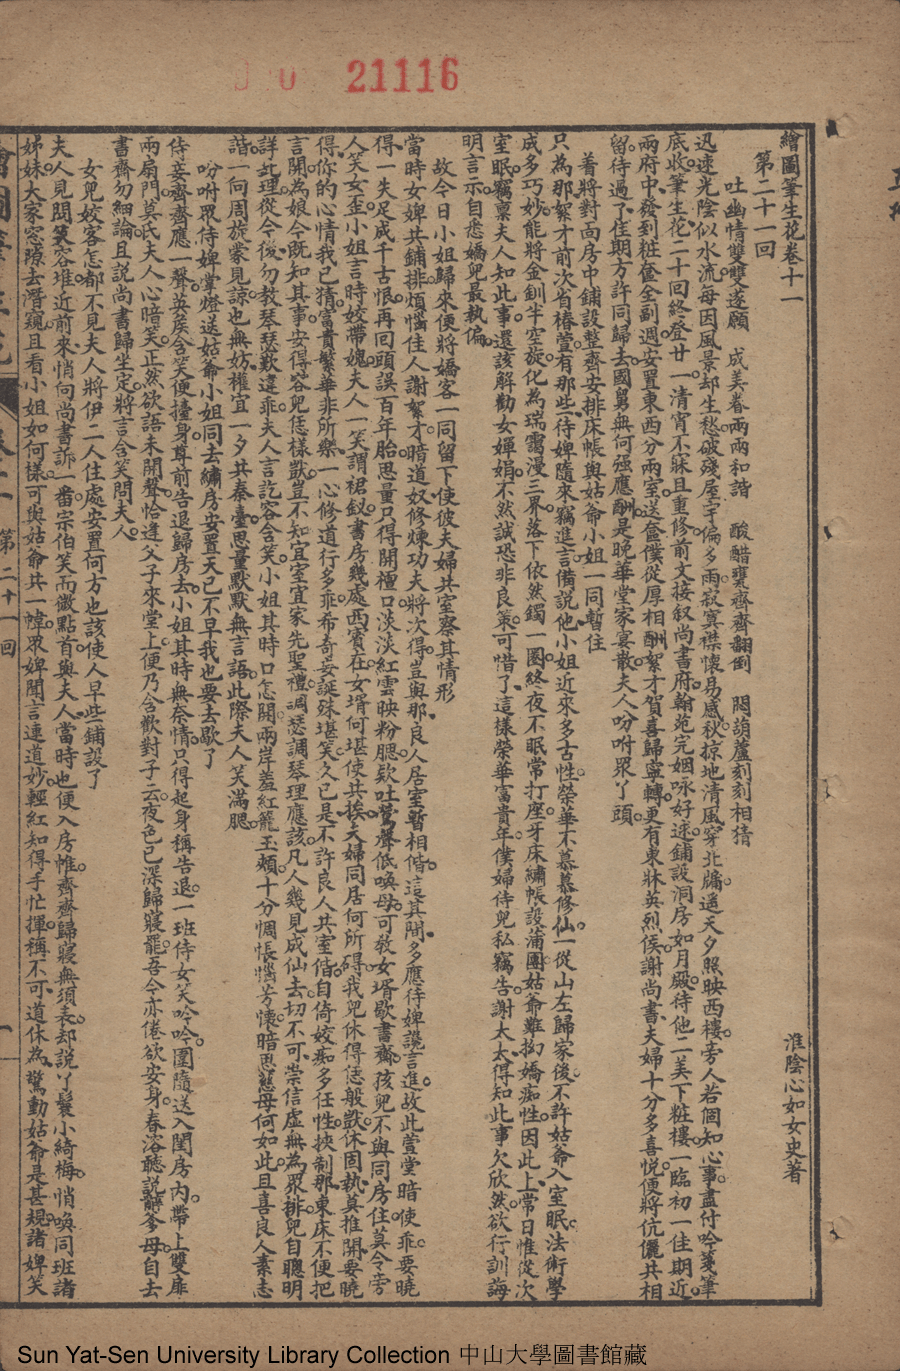 21116
繪圖筆生花卷十一　淮陰心如女史著
第二十一回
吐幽情雙雙遂願　成美眷兩兩和諧　酸醋甕齋齋翻倒　悶葫蘆刻刻相猜
迅速光陰似水流。每因風景却生愁。破殘屋宇偏多雨。寂寞襟懷易感秋。掠地清風穿北牖。遥天夕照映西樓。旁人若個知心事。盡付吟箋筆
底收。筆生花二十回終。登廿一。清宵不寐且重修。前文接叙尚書府。翰苑完姻咏好逑。鋪設洞房如月殿。待他二美下粧樓。一臨初一佳期近。
兩府中。發到粧奩全副週。安置東西分兩室。送奩僕從厚相酬。絮才賀喜歸寧轉。更有東牀英烈侯。謝尚書。夫婦十分多喜悦。便將伉儷共相
留。待過了佳期方許同歸去。國舅無何强應酬。是晚華堂家宴散。夫人吩咐眾丫頭。
着將對面房中鋪設整齊安排床帳與姑爺小姐一同暫住
只為那絮才前次省椿萱。有那些。侍婢隨來竊進言。備説他。小姐近來多古性。榮華不慕慕修仙。一從山左歸家後。不許姑爺入室眠。法術學
成多巧妙。能將金釧半空旋。化為瑞靄漫三界。落下依然鐲一圈。終夜不眠常打座。牙床繡帳設蒲團。姑爺難拗嬌痴性。因此上。常日惟從次
室眠。竊稟夫人知此事。還該解勸女嬋娟。不然誠恐非良策。可惜了。這樣榮華富貴年。僕婦侍兒私竊告。謝太太。得知此事欠欣然。欲行訓誨
明言示。自恐嬌兒最執偏。
故今日小姐歸來便將嬌客一同留下使彼夫婦共室察其情形
當時女婢共鋪排。煩惱佳人謝絮才。暗道奴修煉功夫將次得。豈與那。良人居室暫相偕。這其間。多應侍婢讒言進。故此萱堂暗使乖。要曉
得一失足成千古恨。再回頭誤百年胎。思量只得開檀口。淡淡紅雲映粉腮。欵吐鶯聲低喚母。可敎女壻歇書齋。孩兒不與同房住。莫令旁
人笑女歪。小姐言時姣帶媿。夫人一笑謂裙釵。書房幾處西賓在。女壻何堪使共挨。夫婦同居何所碍。我兒休得恁般獃。休固執。莫推開。要曉
得。你的心情我已猜。富貴繁華非所樂。一心修道行多乖。希奇妄誕殊堪笑。久已是。不許良人共室偕。自倚姣痴多任性。挾制那。東床不便把
言開。為娘今既知其事。安得容兒恁樣獃。豈不知宜室宜家先聖禮。調瑟調琴理應該。凡人幾見成仙去。切不可。崇信虛無為累排。兒自聰明
詳此理。從今後。勿教琴瑟歎違乖。夫人言訖容含笑。小姐其時口怎開。兩岸羞紅籠玉頰。十分惆悵惱芳懷。暗思慈母何如此。且喜良人素志
諧。一向周旋蒙見諒。也無妨。權宜一夕共秦臺。思量默默無言語。此際夫人笑滿腮。
吩咐眾侍婢掌燈送姑爺小姐同去繡房安置天已不早我也要去歇了
侍妾齋齋應一聲。英侯含笑便擡身。尊前告退歸房去。小姐其時無奈情。只得起身稱告退。一班侍女笑吟吟。圍隨送入閨房内。帶上雙扉
兩扇門。莫氏夫人心暗笑。正然欲語未開聲。恰逢父子來堂上。便乃含歡對子云。夜色已深歸寢罷。吾今亦倦欲安身。春溶聽説辭爹母。自去
書齋勿細論。且説尚書歸坐定。將言含笑問夫人。
女兒姣客怎都不見夫人將伊二人住處安置何方也該使人早些鋪設了
夫人見問笑容堆。近前來。悄向尚書訴一番。宗伯笑而微點首。與夫人。當時也便入房帷。齋齋歸寢無須表。却説丫鬟小綺梅。悄喚同班諸
姊妹。大家窓隙去潛窺。且看小姐如何樣。可與姑爺共一幃。眾婢聞言連道妙。輕紅知得手忙揮。稱不可。道休為。驚動姑爺是甚規。諸婢笑
第二十一回
一
Sun Yat-Sen University Library Collection 中山大學圖書館藏